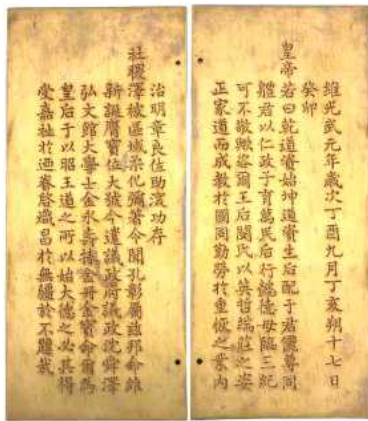 維光武元年歲次丁酉九月丁亥朔十七日
癸卯
皇帝若曰乾道資始坤道資生后配于君儷尊同
體君以仁政子育萬民后行懿德母臨三紀
可不敬歟咨爾王后閔氏以英哲端莊之姿
正家道而成教於國同勤勞於重恢之業內
治明章良佐助浚功存
社稷澤被區域柔化彌著令聞孔彰屬玆邦命維
新誕膺寶位大號今遣議政府議政沈舜澤
弘文館大學士金永壽捧金冊金寶命爾爲
皇后于以昭王道之所以始大德之必其得
受嘉祉於迺眷啓熾昌於無疆於不韙哉